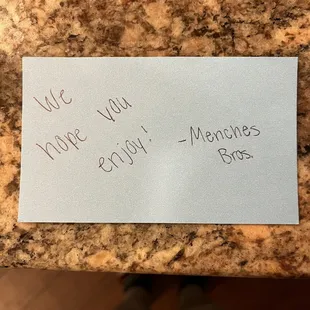 We
hope you
enjoy!
-Menches
Bros.